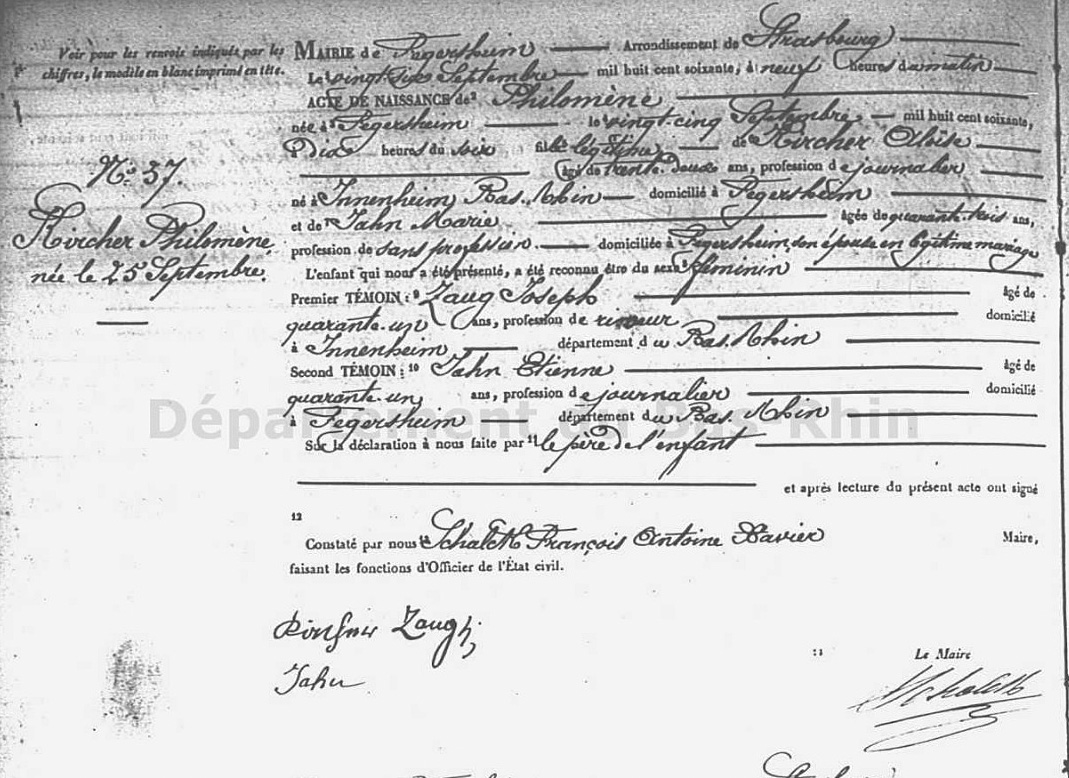 Voir pour les renvois indiqués par les
chiffres, le modèle en blanc imprimé en tête.
No 37.
Kircher Philomène,
née le 25 Septembre.
MAIRIE de Fegersheim Arrondissement de Strasbourg
Le vingt six Septembre mil huit cent soixante, à neuf heures du matin
ACTE DE NAISSANCE de Philomène
née à Fegersheim le vingt-cinq Septembre mil huit cent soixante,
à dix heures du soir fille légitime de Kircher Aloïse
âgé de trente-deux ans, profession de journalier
né à Innenheim Bas-Rhin domicilié à Fegersheim
et de Jahn Marie âgée de quarante-trois ans,
profession de sans profession domiciliée à Fegersheim, son épouse en légitime mariage
L'enfant qui nous a été présenté, a été reconnu être du sexe féminin
Premier TÉMOIN : 9 Zaug Joseph âgé de
quarante-un ans, profession de domicilié
à Innenheim département du Bas-Rhin
Second TÉMOIN : 10 Jahn Etienne âgé de
quarante-un ans, profession de journalier domicilié
à Fegersheim département du Bas-Rhin
Sur la déclaration à nous faite par 11 le père de l'enfant
et après lecture du présent acte ont signé
12
Constaté par nous Schalck François Antoine Xavier Maire,
faisant les fonctions d'Officier de l'État civil.
Zaugh
Jahn
Le Maire
Schalck
Département du Bas-Rhin